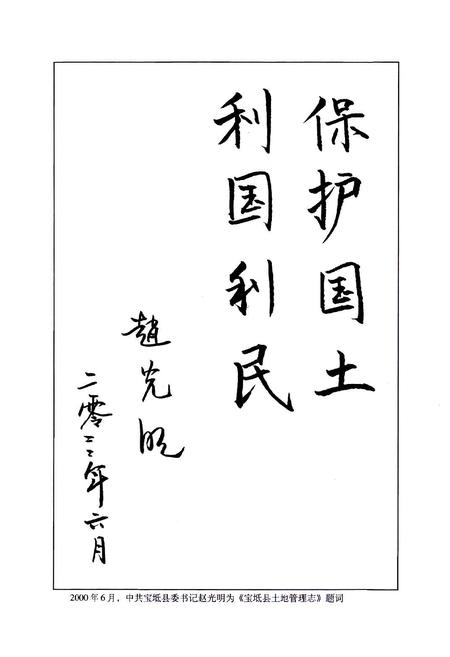 保护国土
利国利民
趙光明
二零〻〻年六月
2000年6月，中共宝坻县委书记赵光明为《宝坻县土地管理志》题词